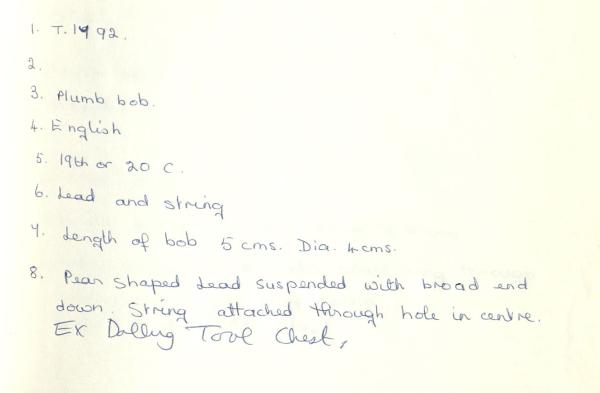 1. T.1992.
2.
3. Plumb bob.
4. English
5. 19th or 20 C.
6. Lead and string
7. Length of bob 5 cms. Dia. 4 cms.
8. Pear shaped Lead suspended with broad end
down. String attached through hole in centre.
Ex Tool Chest,